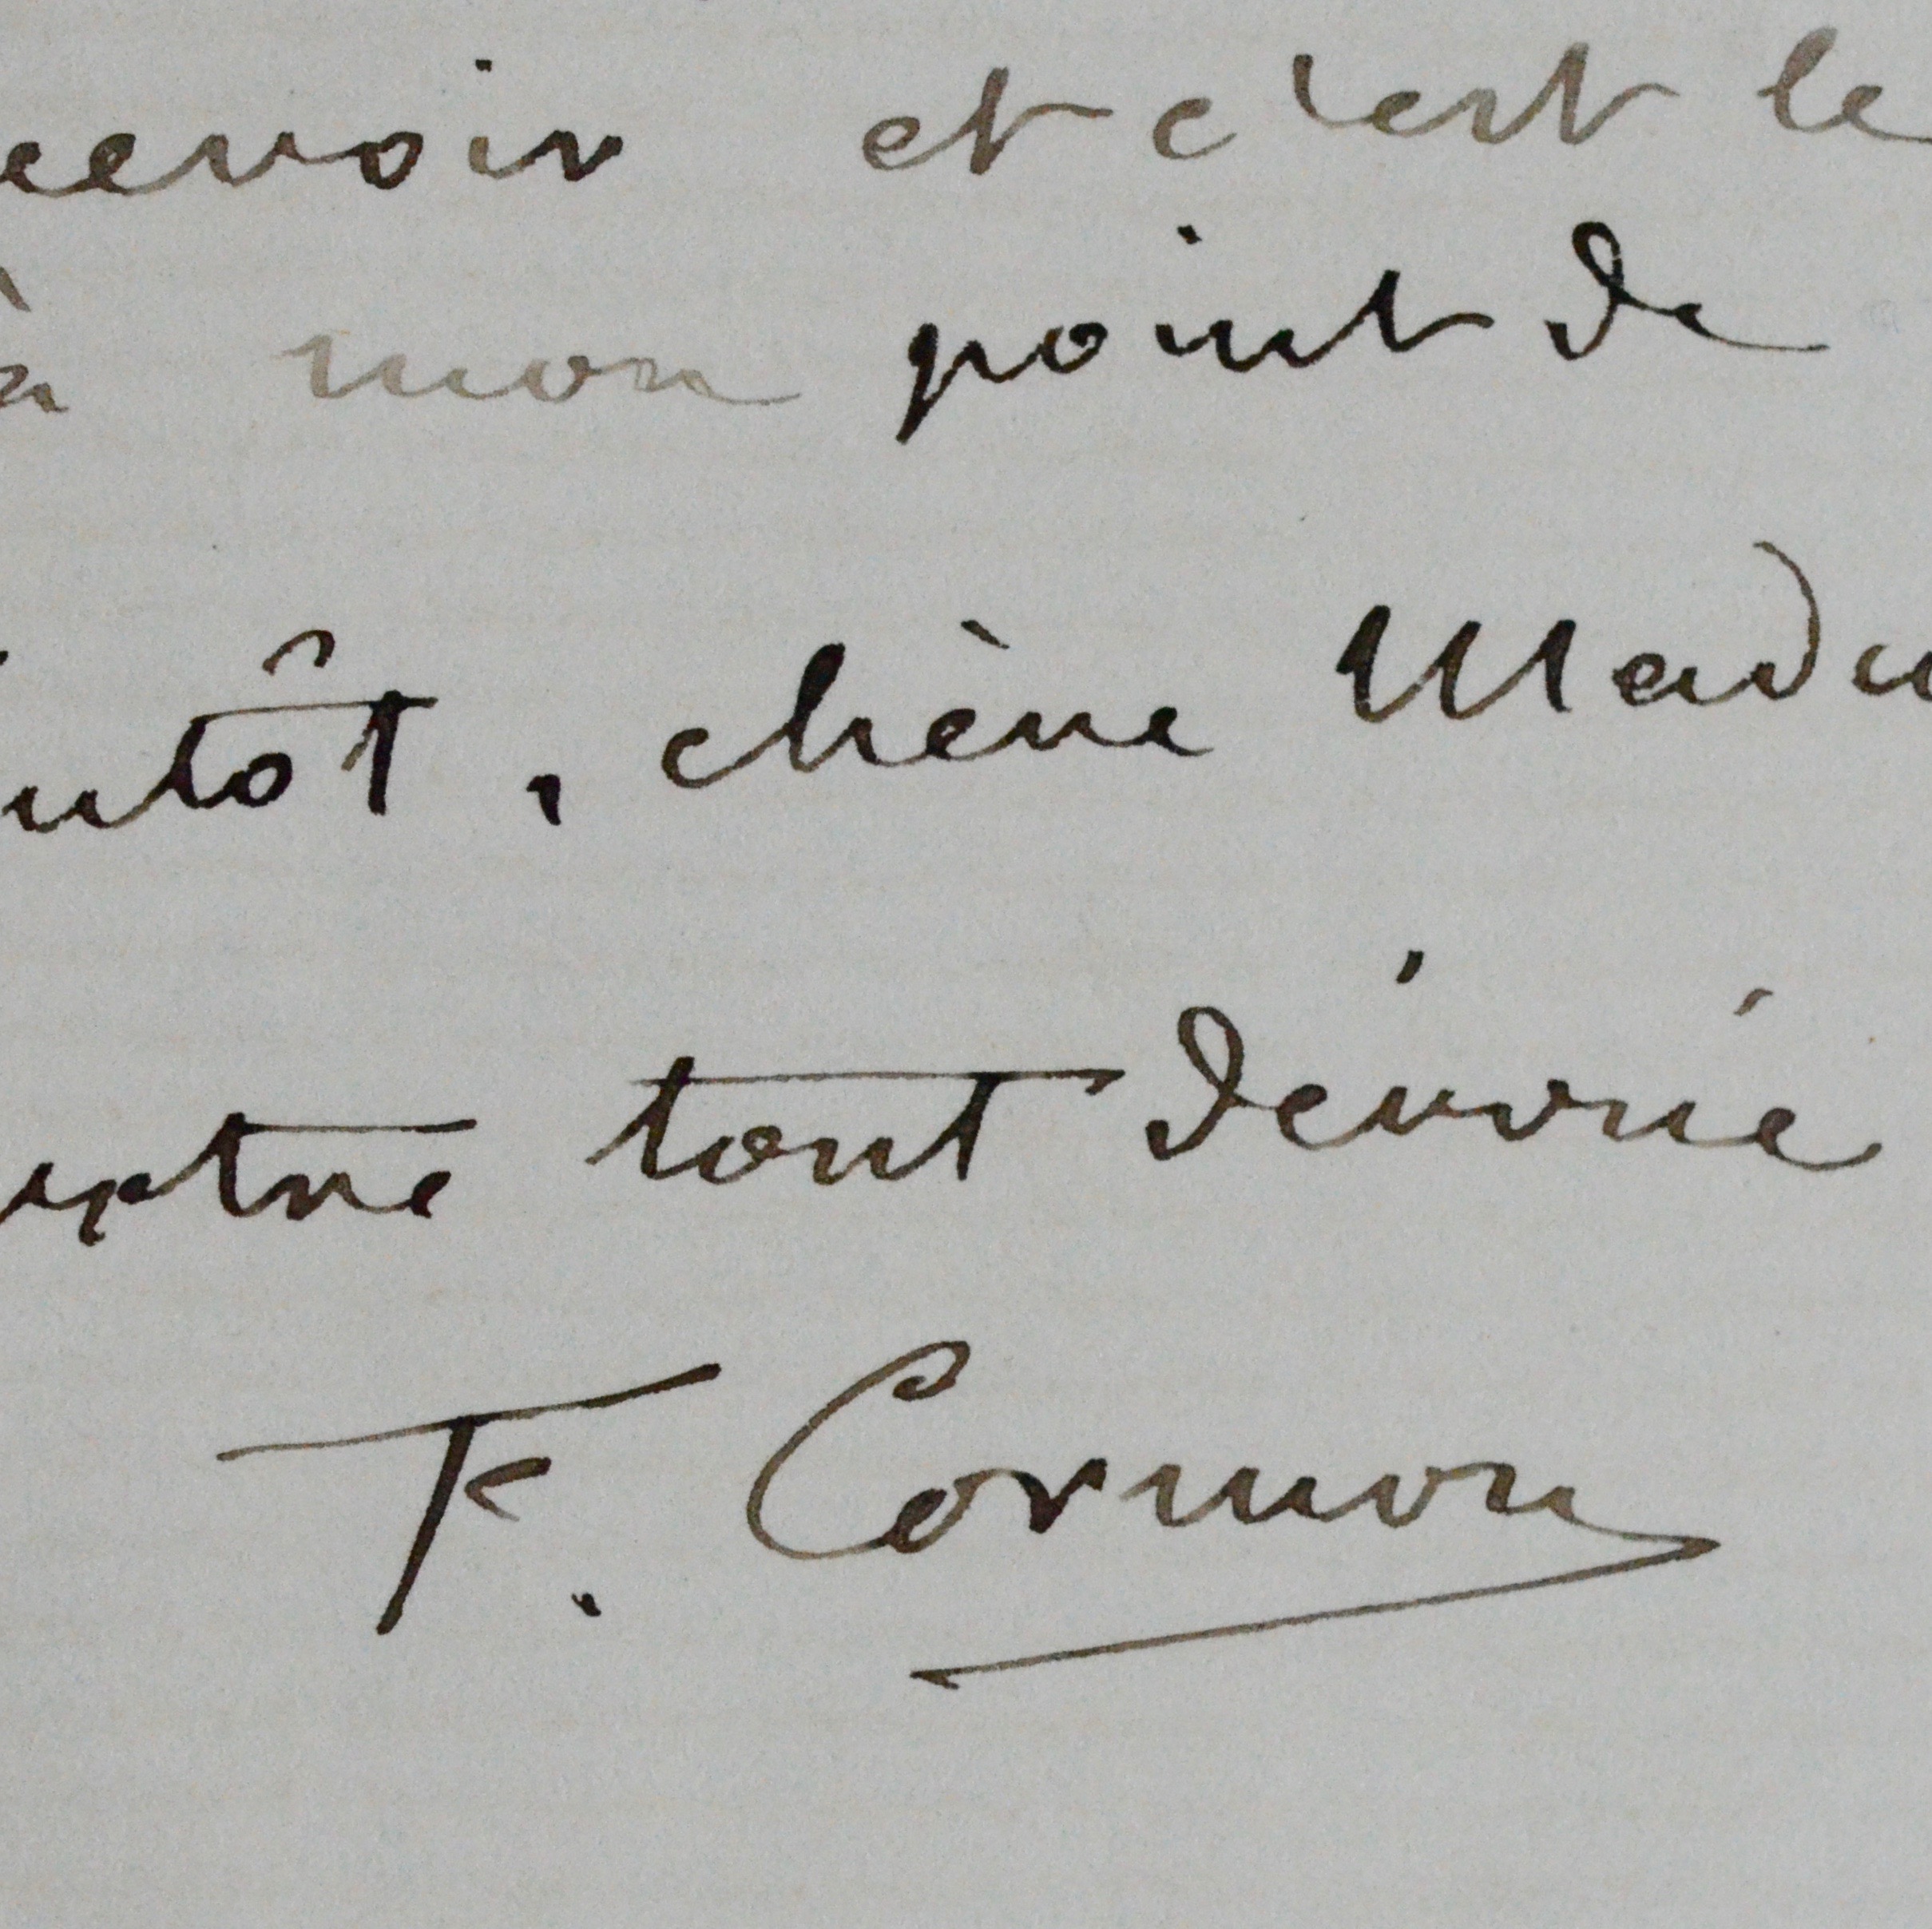 cevoir et c'est le
à mon point de
ntôt, chère Mada
votre tout dévoué
F. Cormon